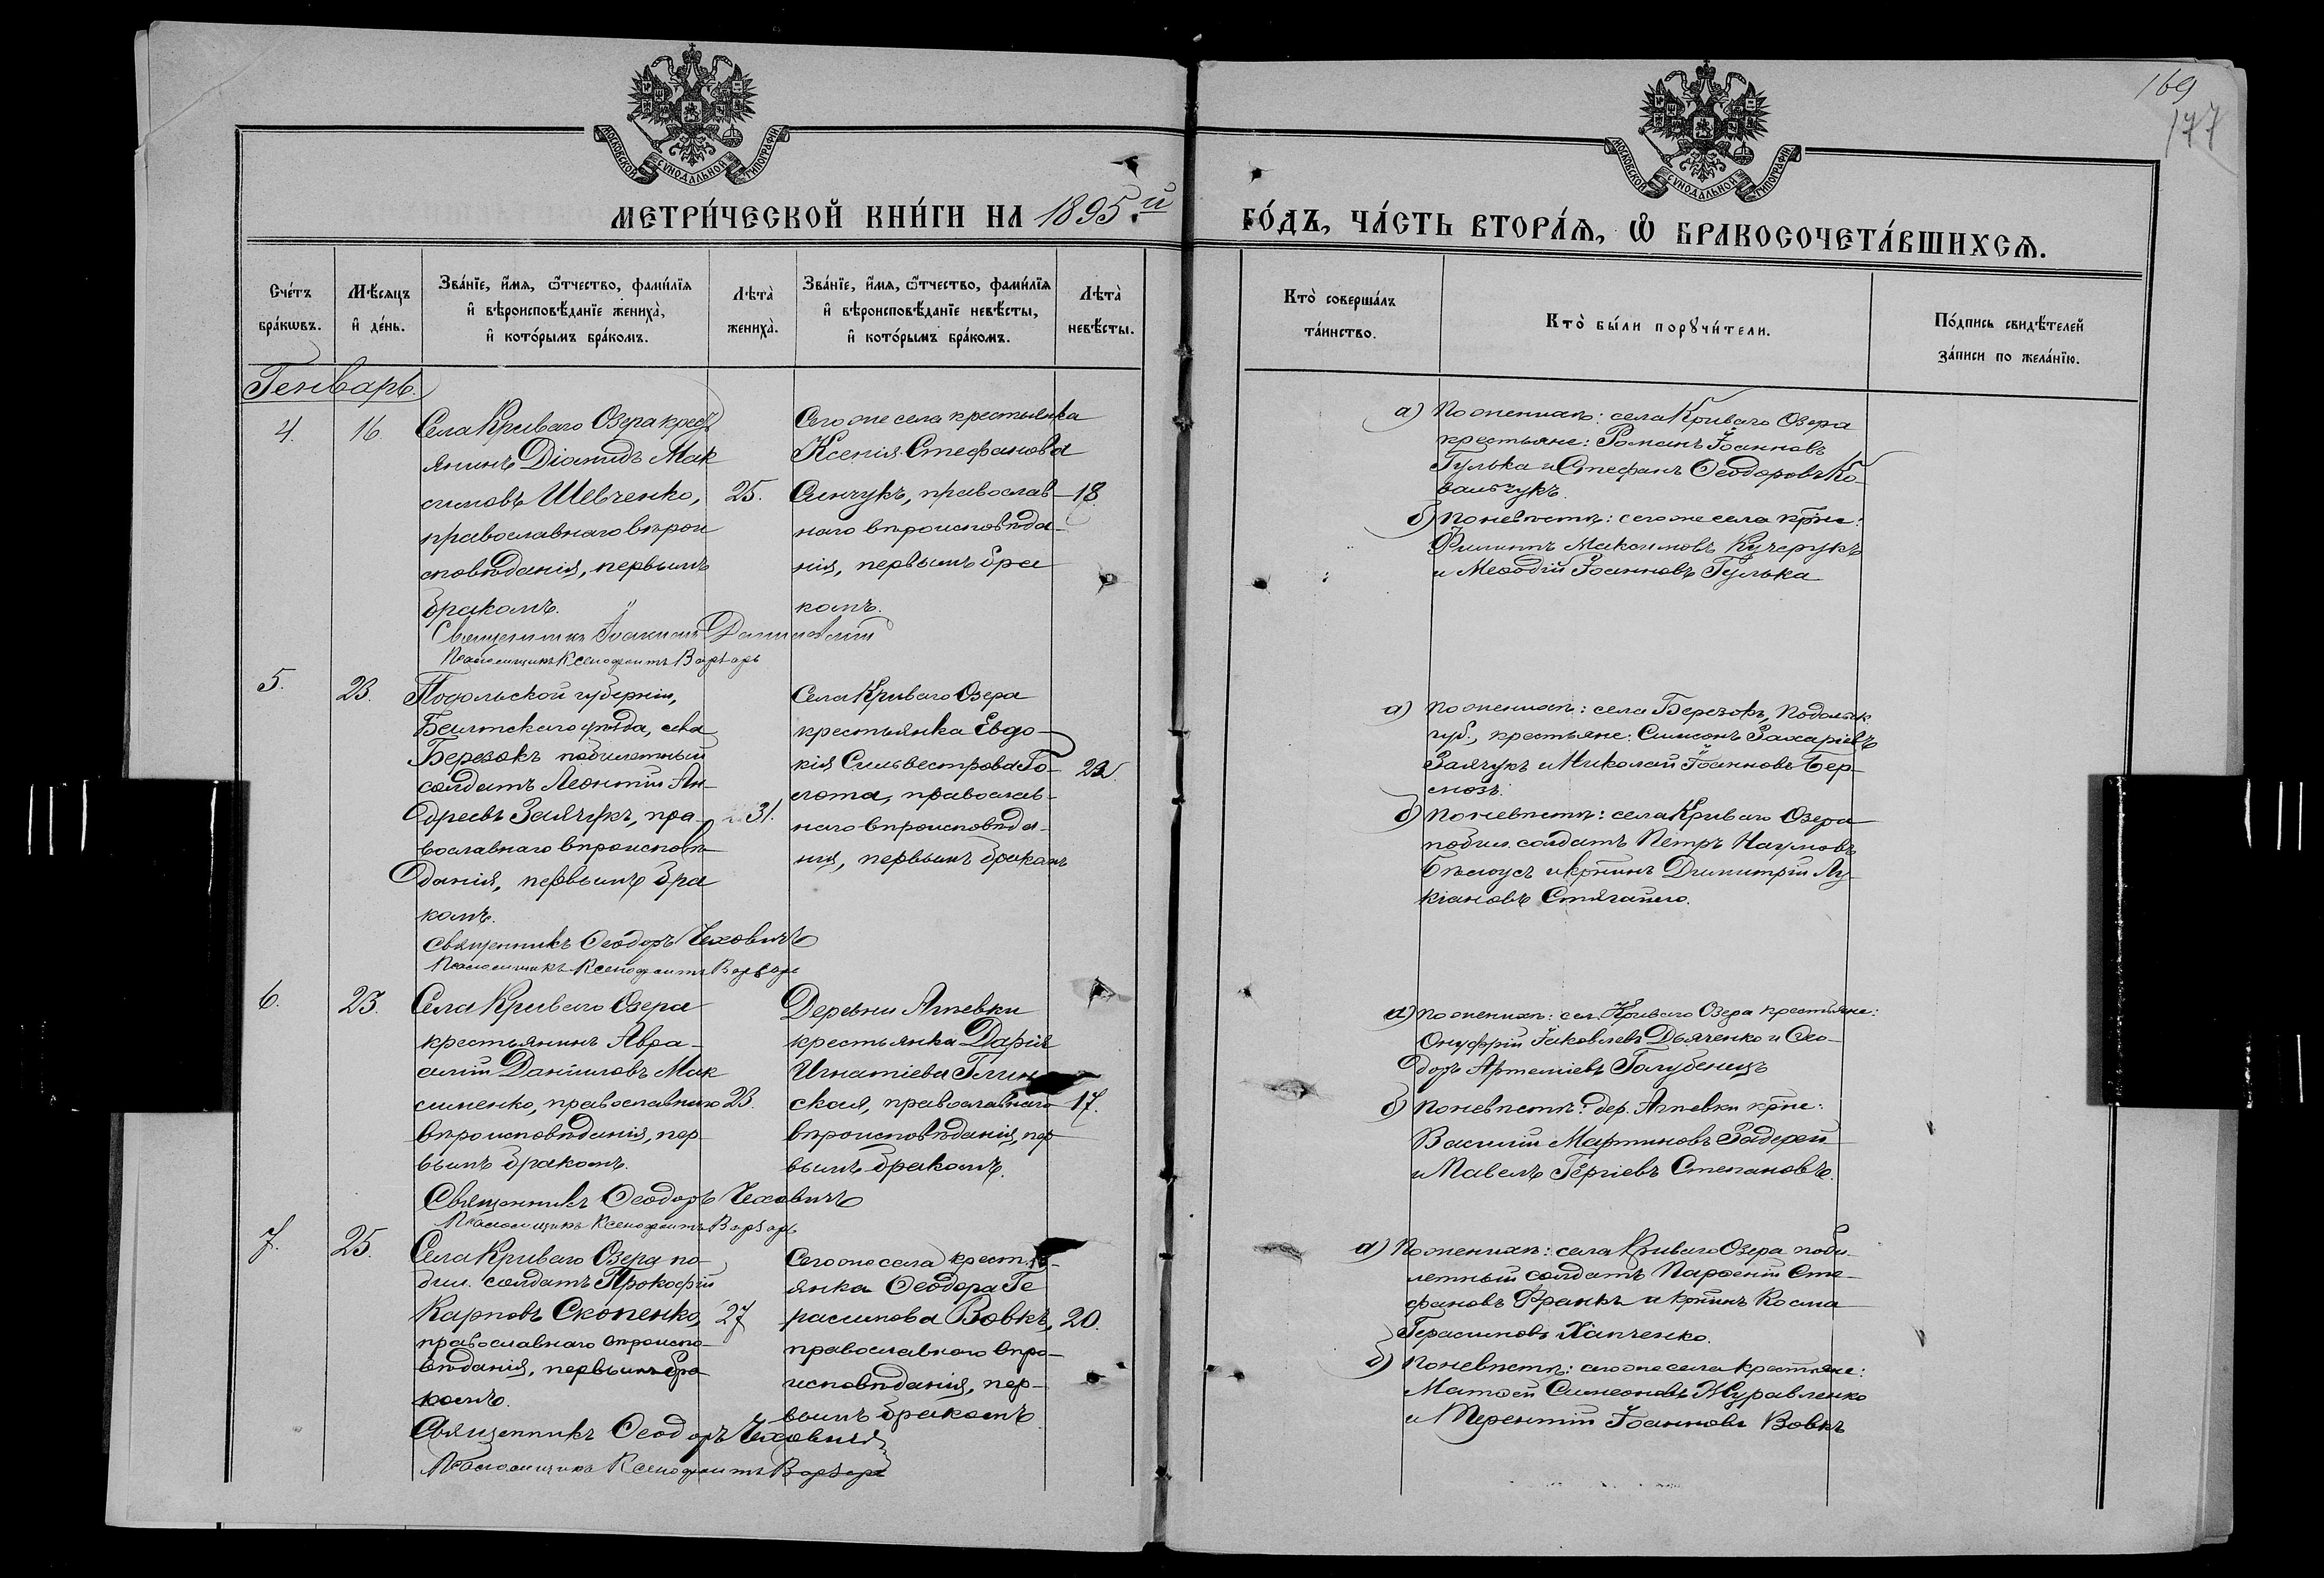 169
177
МОСКОВСКОЙ СУНОДАЛЬНОЙ ТИПОГРАФІИ
МОСКОВСКОЙ СУНОДАЛЬНОЙ ТИПОГРАФІИ
МЕТРИ́ЧЕСКОЙ КНИ́ГИ НА 1895.й
ГО́ДЪ, ЧА́СТЬ ВТОРА́Ѧ, Ѡ҆ БРАКОСОЧЕТА́ВШИХСѦ.
Сче́тъ
бра́кѡвъ.
Мѣ́сѧцъ
и҆ де́нь.
Зва́нїе, и҆́мѧ, ѻ҆́тчество, фами́лїѧ
и҆ вѣроисповѣ́данїе жениха̀,
и҆ кото́рымъ бра́комъ.
Лѣта̀
жениха̀.
Зва́нїе, и҆́мѧ, ѻ҆́тчество, фами́лїѧ
и҆ вѣроисповѣ́данїе невѣ́сты,
и҆ кото́рымъ бра́комъ.
Лѣта̀
невѣ́сты.
Кто̀ соверша́лъ
та́инство.
Кто̀ бы́ли порꙋчи́тели.
По́дпись свидѣ́телей
за́писи по жела́нїю.
Генварь.
4.
16.
Села Криваго Озера крест
янинъ Діомидъ Мак
симовъ Шевченко,
православнаго вѣрои
сповѣданія, первымъ
бракомъ.
25.
Сего же села крестьянка
Ксенія Стефанова
Синчукъ, православ-
наго вѣроисповѣда-
нія, первымъ бра
комъ.
18.
Священникъ Іоакимъ
Псаломщикъ Ксенофонтъ Варварь
а) По женихѣ: села Криваго Озера
крестьяне: Романъ Іоанновъ
Гулька и Стефанъ Ѳеодоровъ Ко-
вальчукъ.
б) По невѣстѣ: сего же села кр̃не:
Филиппъ Максимовъ Кучерукъ
и Меѳодій Іоанновъ Гулька
5.
23.
Подольской губерніи,
Балтскаго уѣзда, села
Березокъ побилетный
солдатъ Леонтій Ан-
дреевъ Заячукъ, пра-
вославнаго вѣроисповѣ
данія, первымъ бра
комъ.
31.
Села Криваго Озера
крестьянка Евдо-
кія Сильвестрова Го-
лота, православ-
наго вѣроисповѣда-
нія, первымъ бракомъ
23.
Священникъ Ѳеодоръ Чеховичъ
Псаломщикъ Ксенофонтъ Варварь
а) По женихѣ: села Березокъ, Подольск.
губ., крестьяне: Симеонъ Захаріевъ
Заячукъ и Николай Іоанновъ Бер-
б) По невѣстѣ: села Криваго Озера
побил. солдатъ Петръ Наумовъ
Бѣлоусъ и кр̃нинъ Димитрій Лу-
кіановъ Стягайло.
6.
23.
Села Криваго Озера
крестьянинъ Авра-
амій Даніиловъ Мак
сименко, православнаго
вѣроисповѣданія, пер
вымъ бракомъ.
23.
Деревни Агѣевки
крестьянка Дарія
Игнатіева Глин
ская, православнаго
вѣроисповѣданія, пер
вымъ бракомъ.
17.
Священникъ Ѳеодоръ Чеховичъ
Псаломщикъ Ксенофонтъ Варварь
а) По женихѣ: сел. Криваго Озера крестьяне:
Онуфрій Іаковлевъ Дьяченко и Ѳео-
доръ Артеміевъ Голубенцъ
б) По невѣстѣ: дер. Агѣевки кр̃не:
Василій Мартиновъ Задерей
и Павелъ Гергіевъ Степановъ.
7.
25.
Села Криваго Озера по-
бил. солдатъ Прокофій
Карповъ Скопенко,
православнаго вѣроиспо-
вѣданія, первымъ бра-
комъ.
27
Сего же села крест.
янка Ѳеодора Ге
расимова Вовкъ,
православнаго вѣро-
исповѣданія, пер-
вымъ бракомъ.
20.
Священникъ Ѳеодоръ Чеховичъ
Псаломщикъ Ксенофонтъ Варварь
а) По женихѣ: села Криваго Озера поби-
летный солдатъ Парѳеній Сте-
фановъ Франкъ и кр̃нинъ Косма
Герасимовъ Хапченко.
б) По невѣстѣ: сего же села крестьяне:
Матѳей Симеоновъ Журавленко
и Терентій Іоанновъ Вовкъ